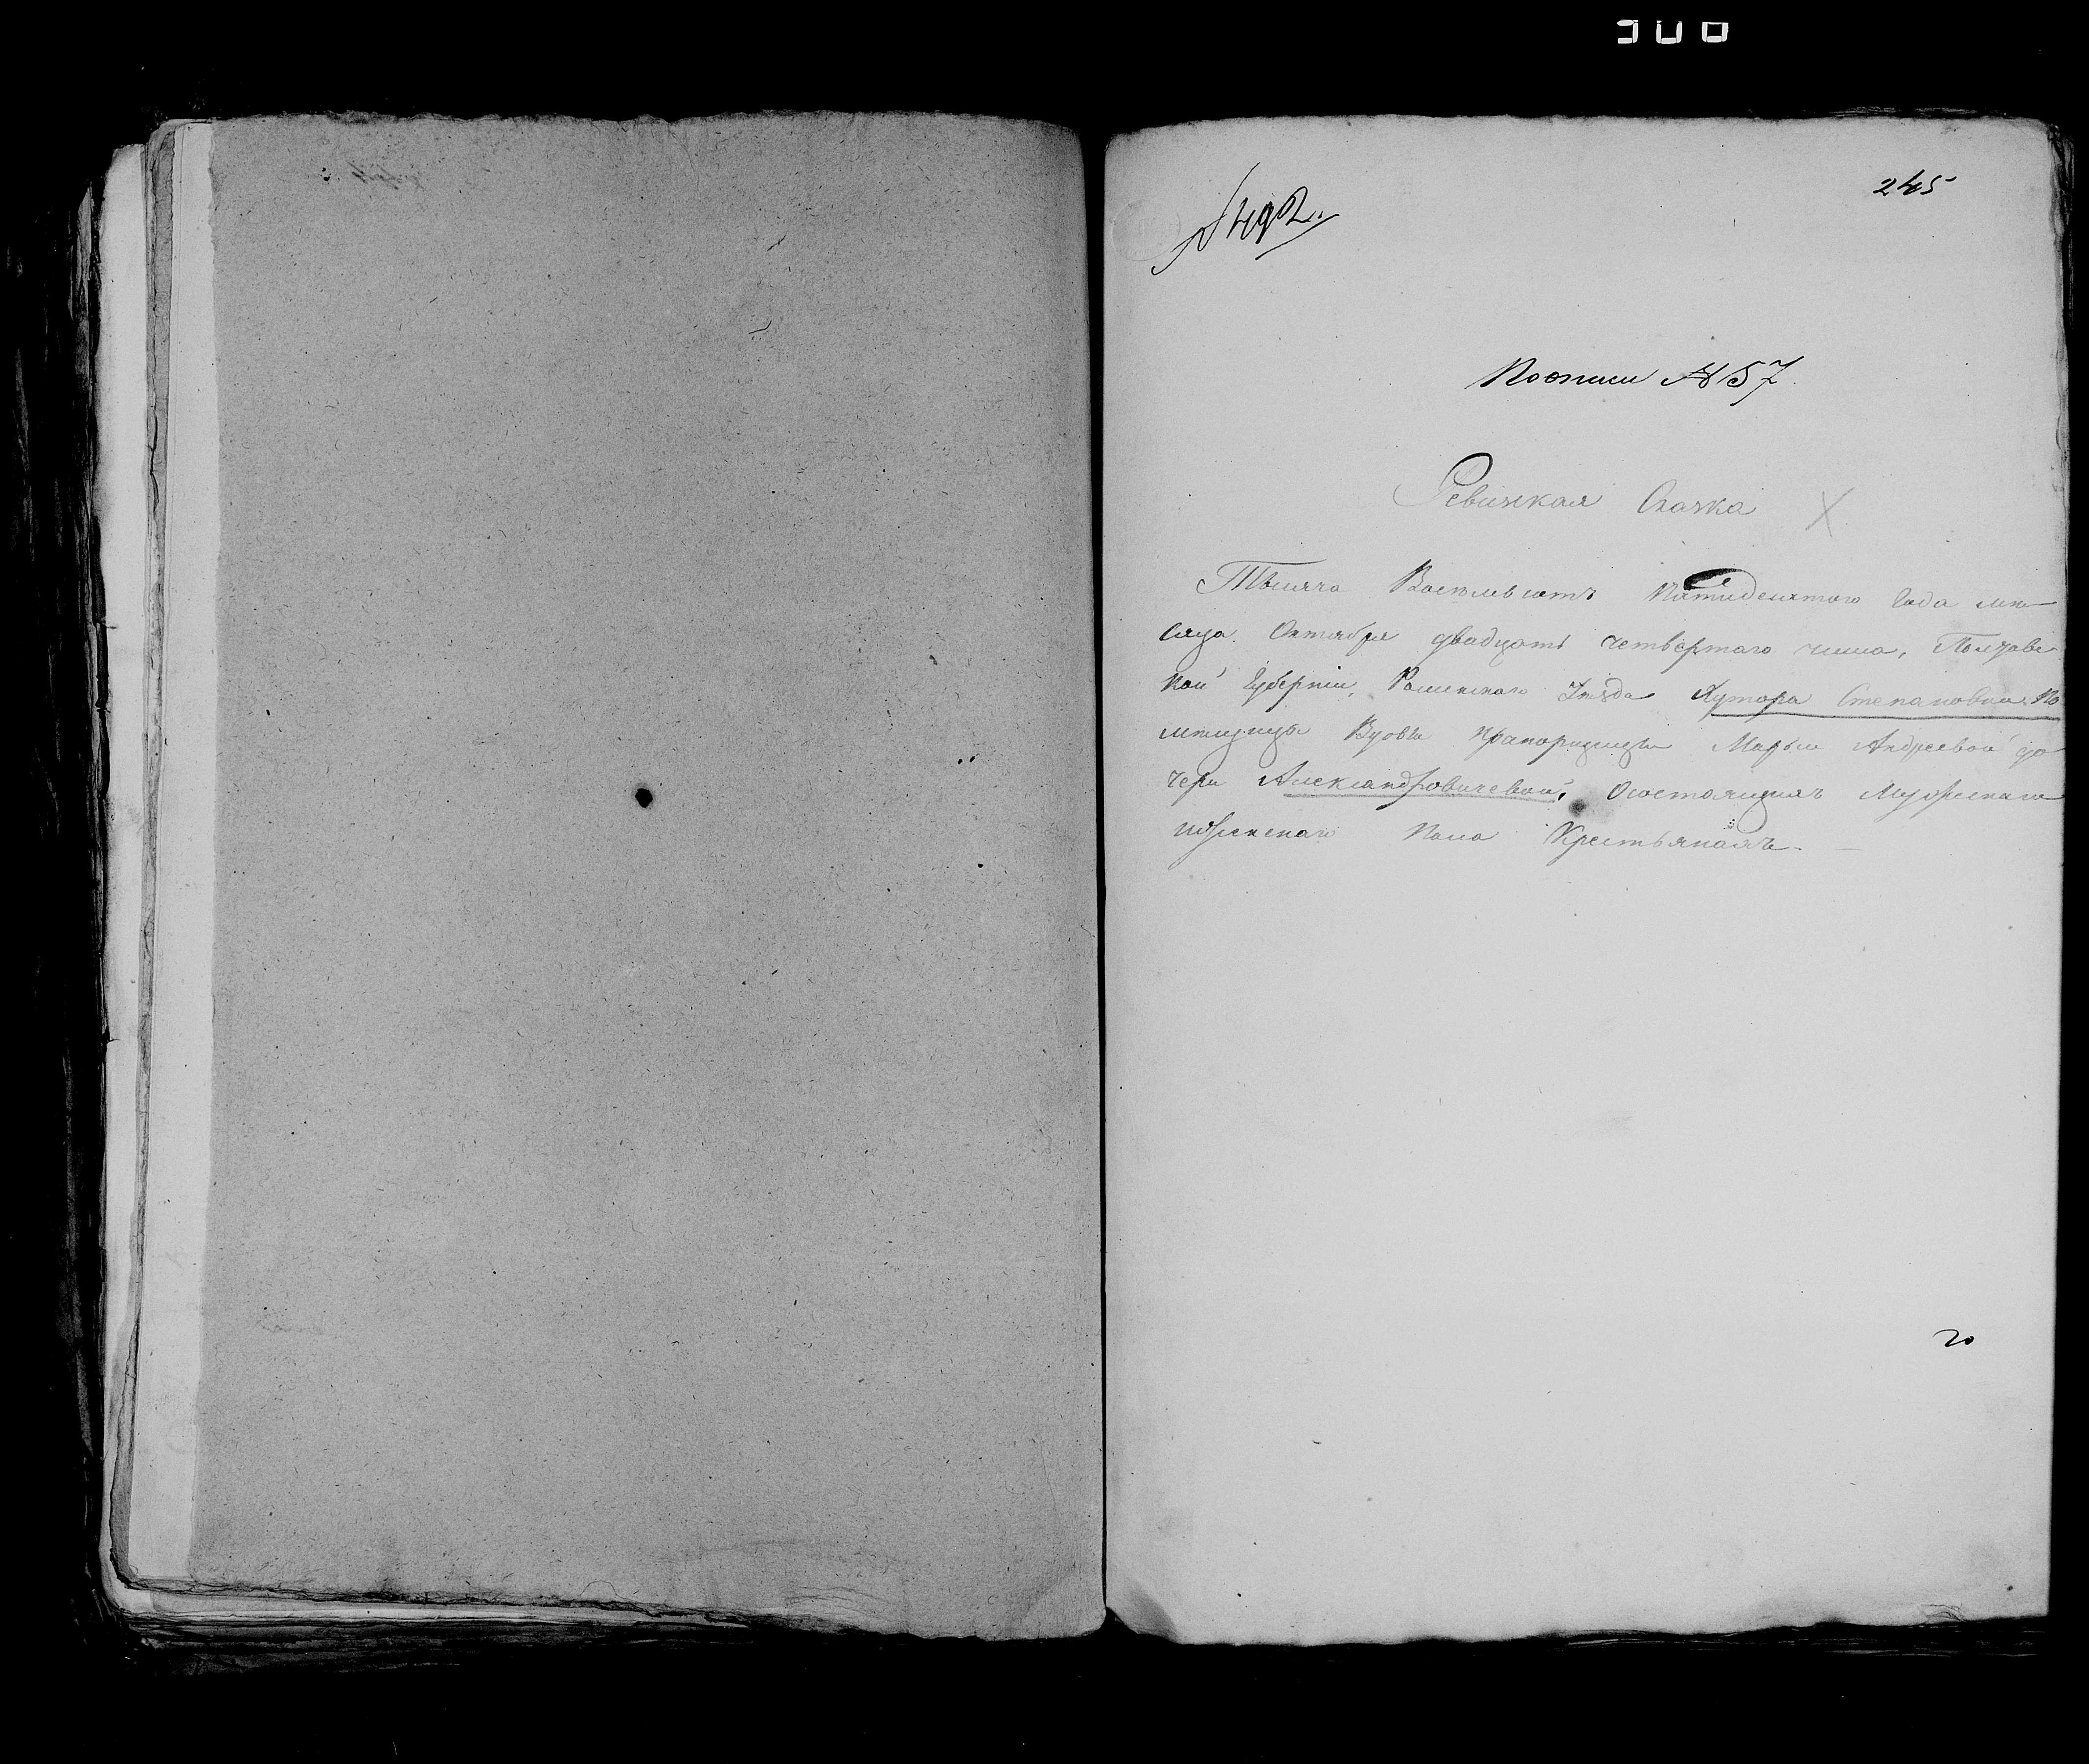 245
№ 492.
По описи № 57.
Ревизская Сказка
Тысяча Восемьсотъ Пятидесятого Года мѣ-
сяца Октября двадцать четвертаго числа, Полтавс
кой Губерніи, Роменскаго Уѣзда Хутора Степановки По
мѣщицы Вдовы Прапорщицы Марьи Андреевой до
чери Александровичевой, О состоящихъ Мужескаго
иженскаго Пола Крестьянахъ.
20